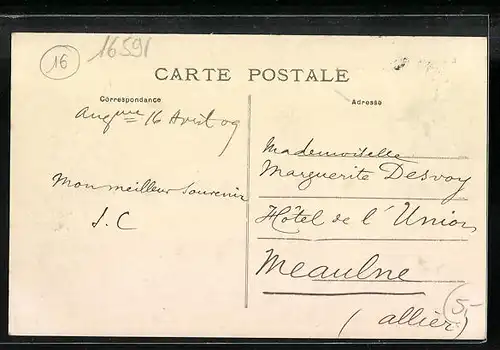 16
16591
CARTE POSTALE
Correspondance
Adresse
Angme 16 Avril 09
Mon meilleur Souvenir
J. C
Mademoiselle
Marguerite Desvoy
Hôtel de l'Union
Meaulne
(allier)
5-